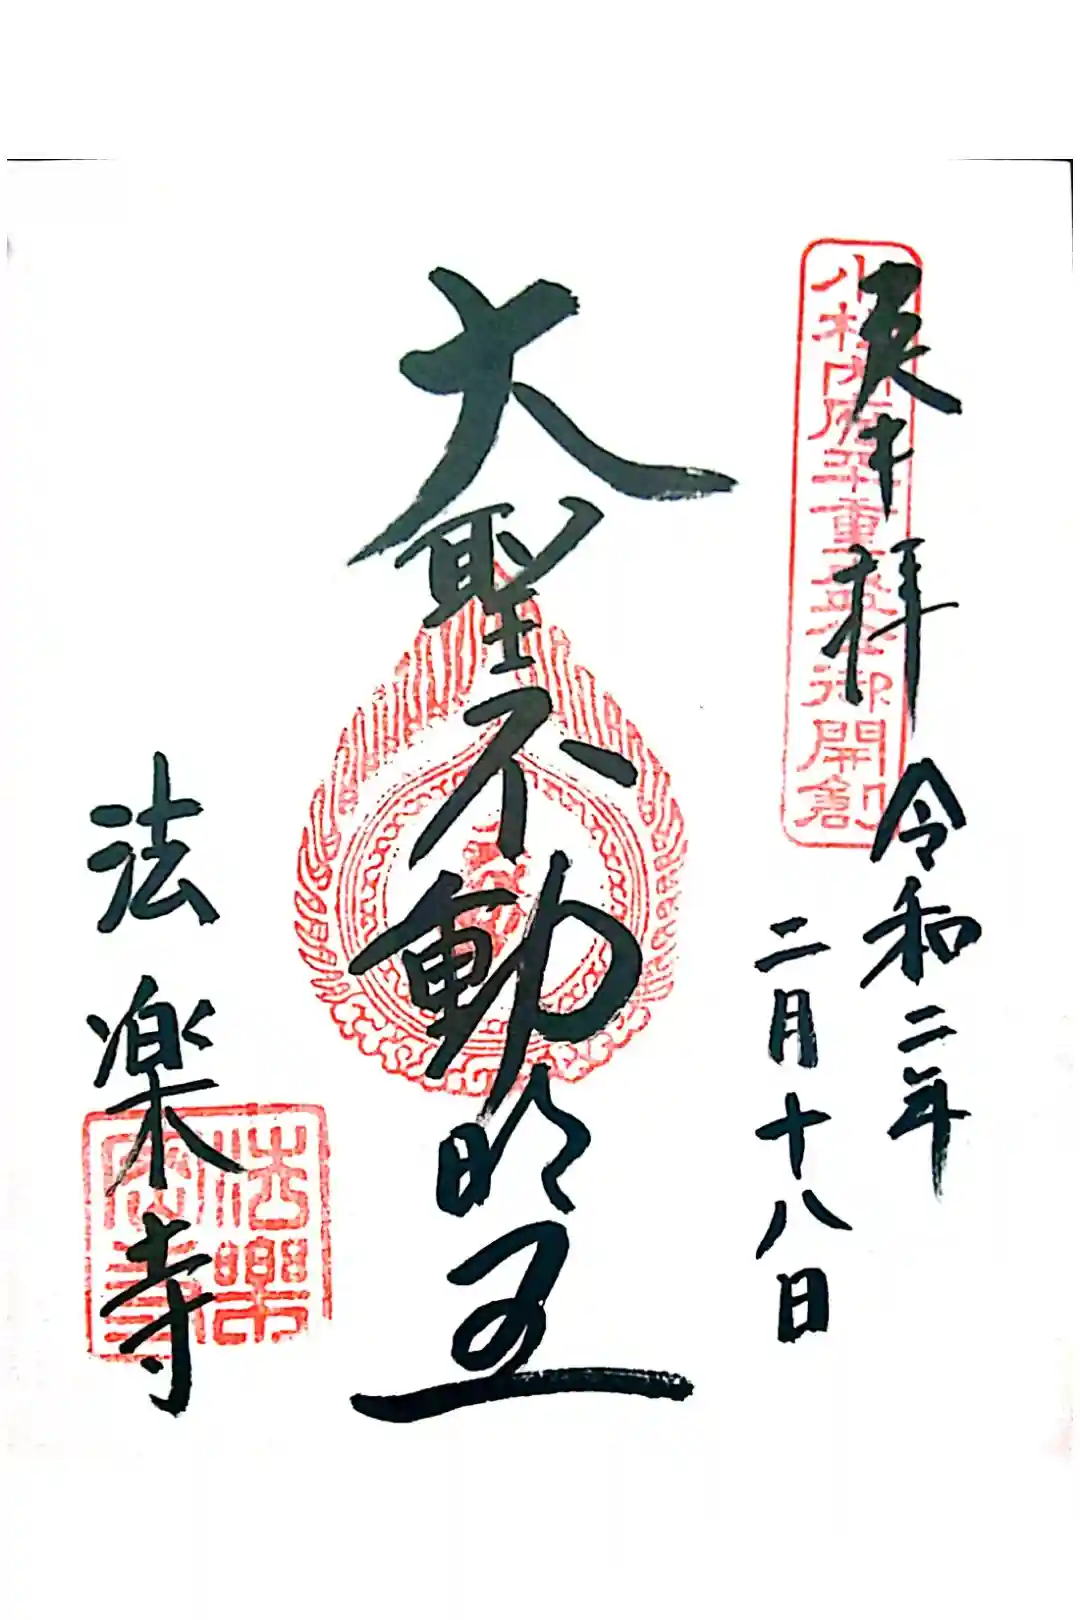 奉拝
小松内府平重盛公御開創
令和二年
二月十八日
大聖不動明王
法楽寺
法樂密寺